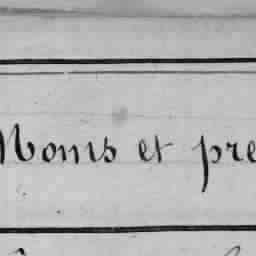 Noms et pre